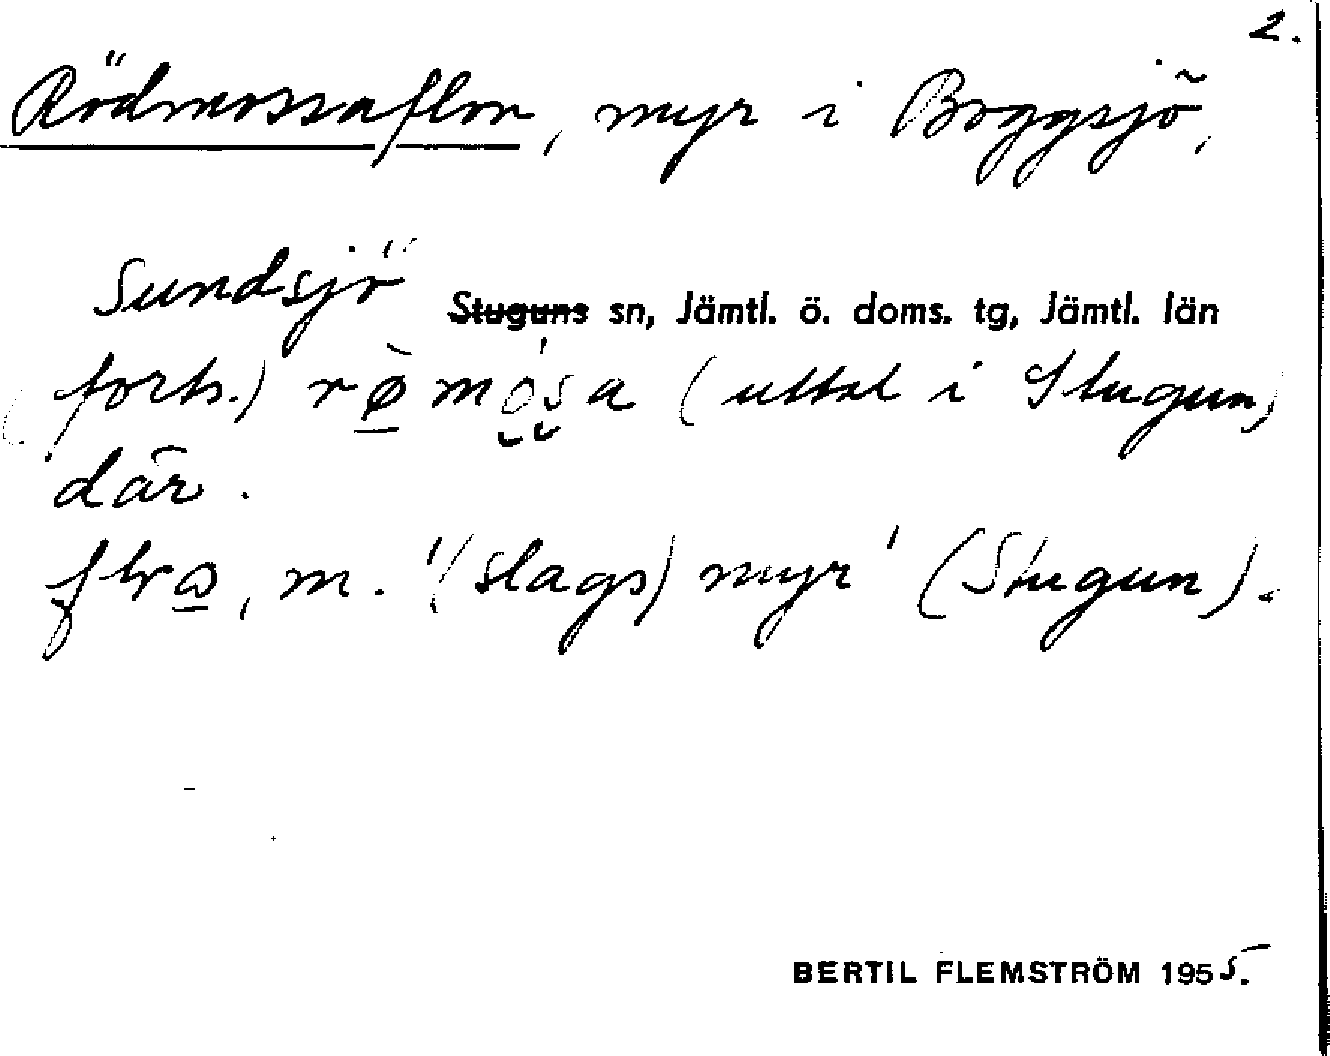 2.
Rödmossaflon, myr i Boggsjö,
Sundsjö Stuguns sn, Jämtl. ö. doms. tg, Jämtl. län
(forts.) rø̀mósa (uttal i Stugun)
där.
m. '(slags) myr' (Stugun).
BERTIL FLEMSTRÖM 1955.